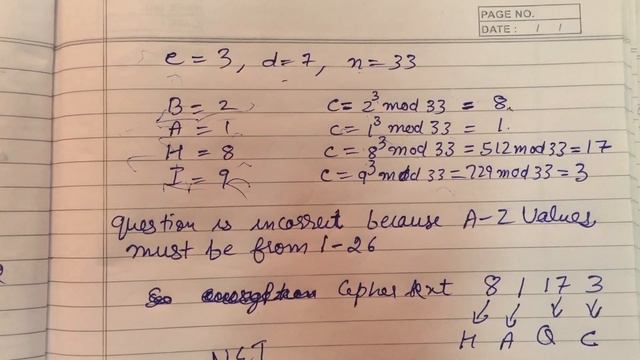 PAGE NO.
DATE: / /
e = 3, d = 7, n = 33
B = 2 c = 2^3 mod 33 = 8.
A = 1 c = 1^3 mod 33 = 1.
H = 8 c = 8^3 mod 33 = 512 mod 33 = 17
I = 9 c = 9^3 mod 33 = 729 mod 33 = 3
question is incorrect because A-Z values
must be from 1-26
So Cipher text 8 1 17 3
H A Q C